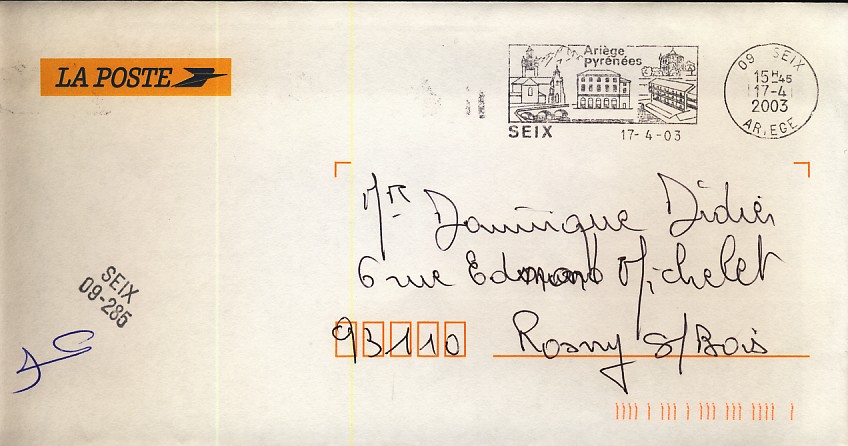 LA POSTE
Ariège
pyrénées
SEIX
17-4-03
09 SEIX
15H45
17-4
2003
ARIEGE
Mr Dominique Didier
6 rue Edmond Michelet
93110 Rosny s/Bois
SEIX
09-285